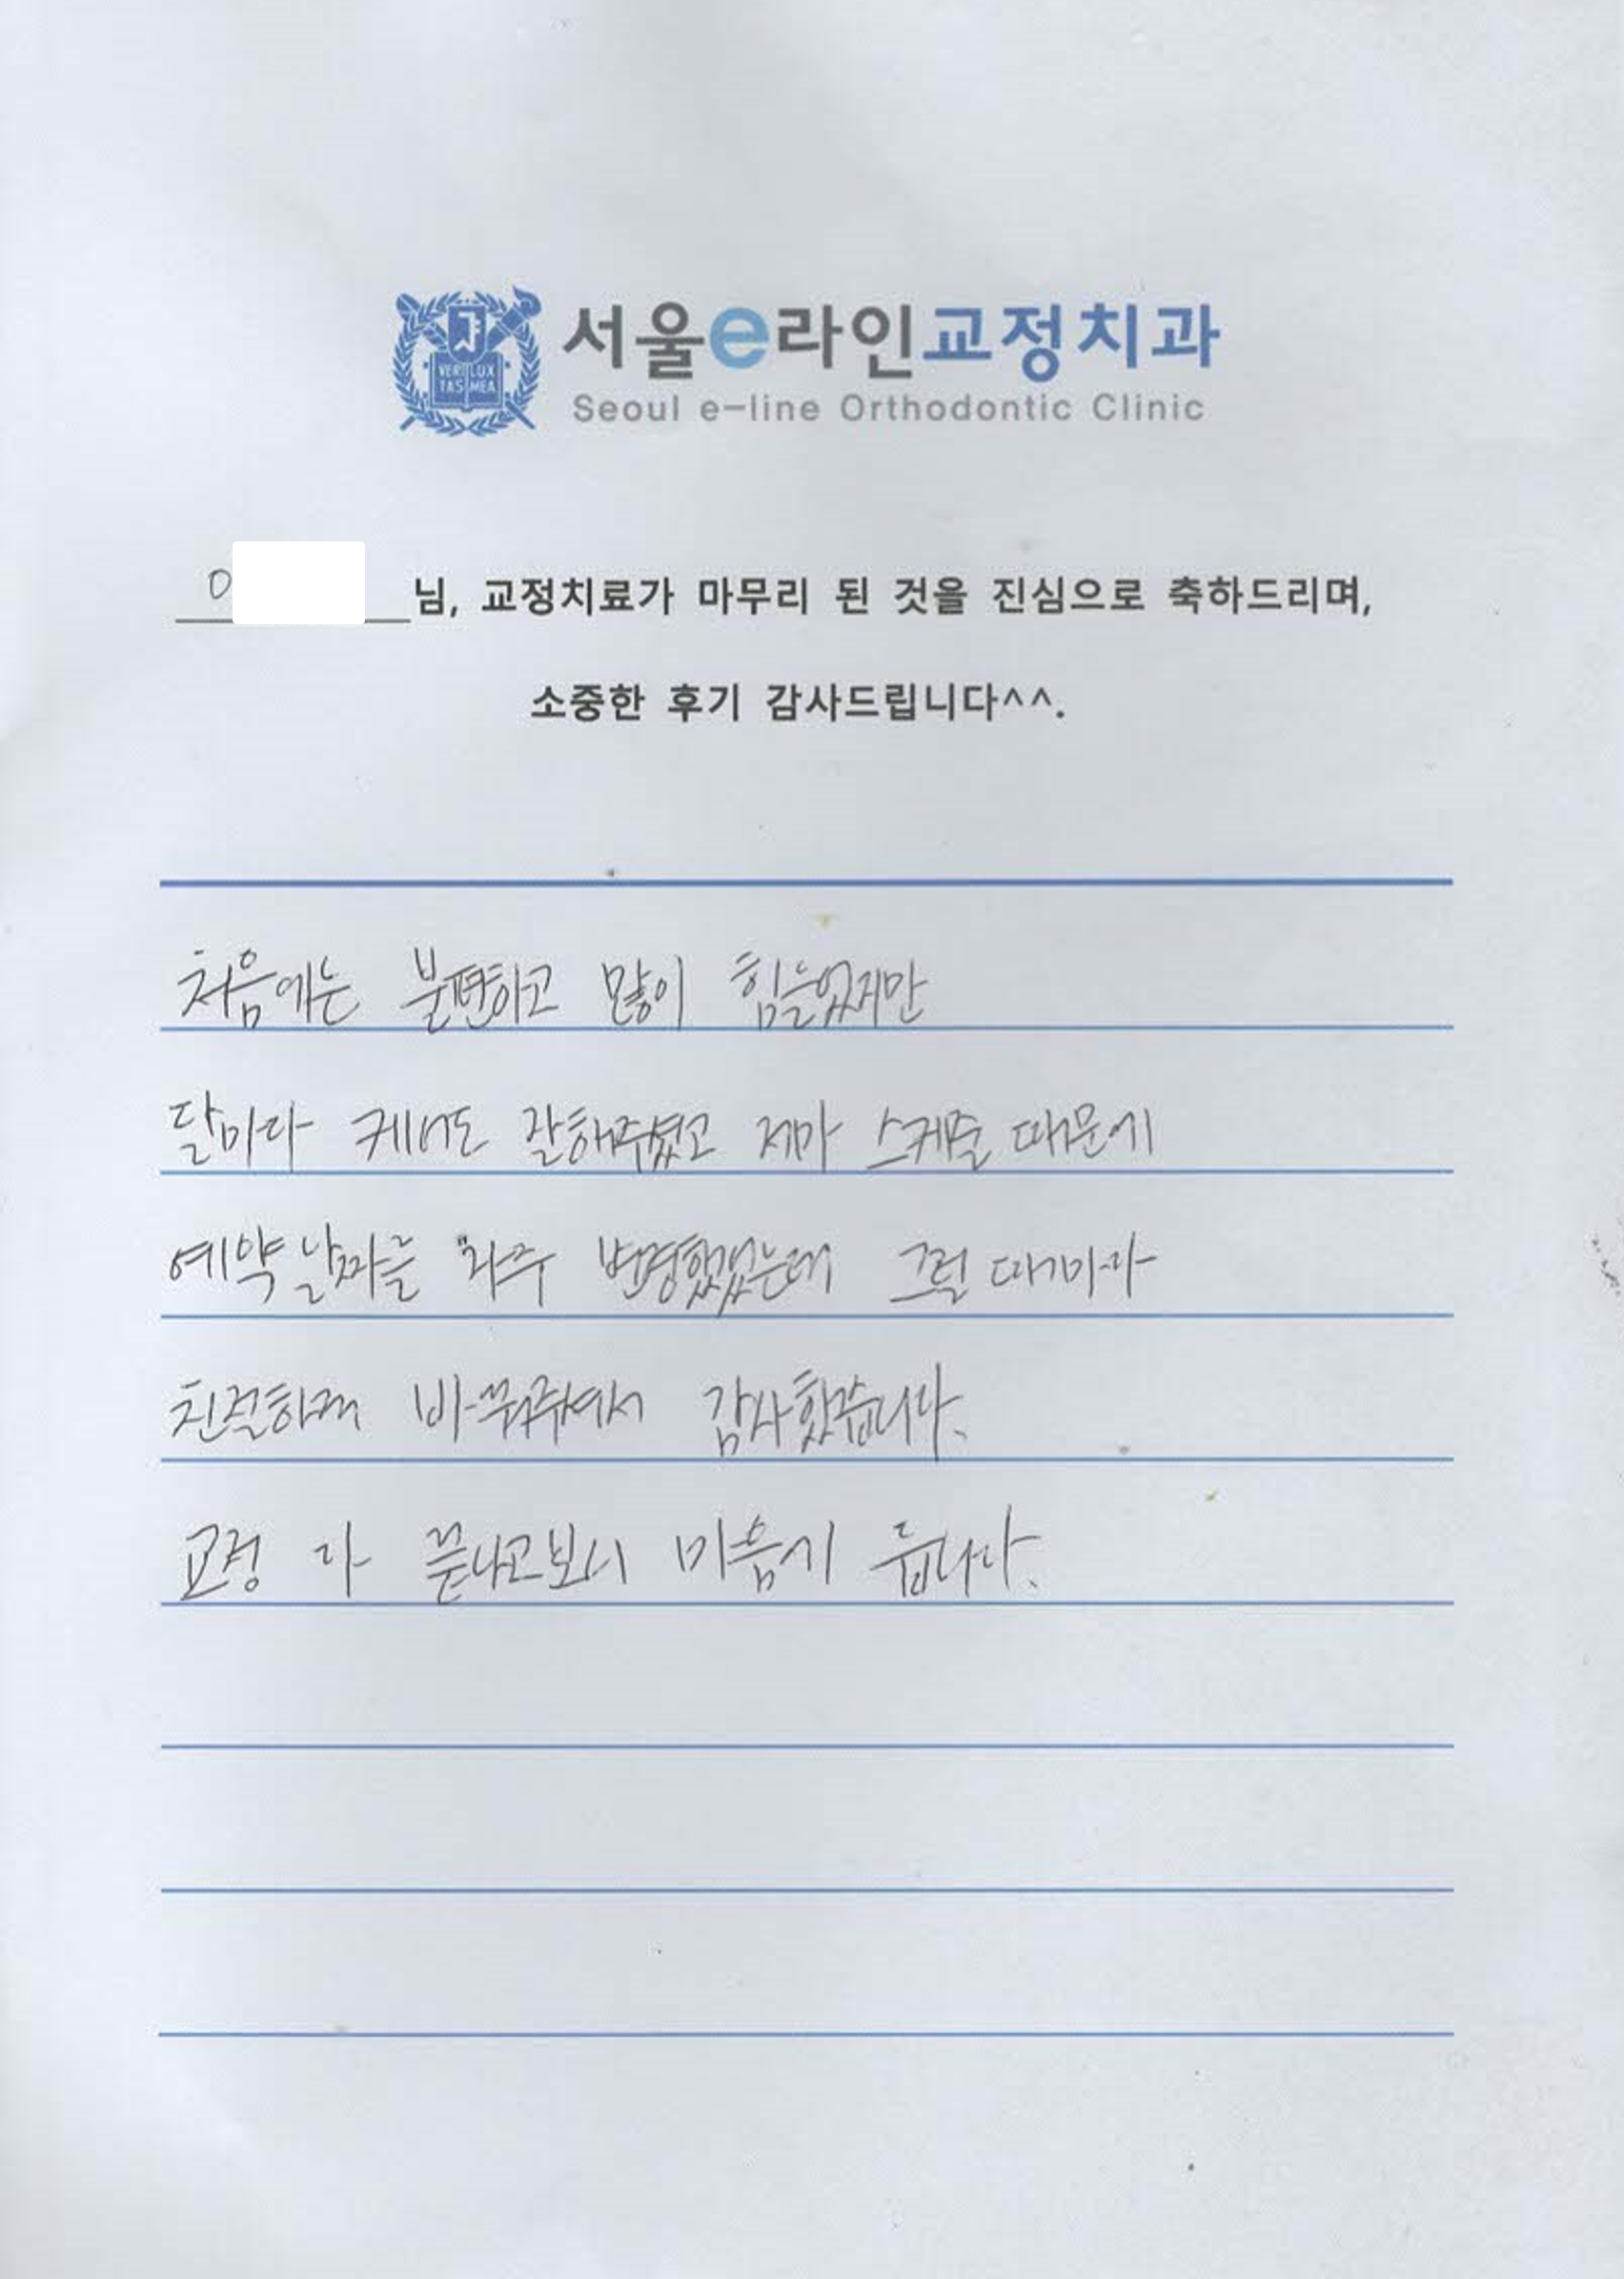 VERI LUX
TAS MEA
서울e라인교정치과
Seoul e-line Orthodontic Clinic
님, 교정치료가 마무리 된 것을 진심으로 축하드리며,
소중한 후기 감사드립니다^^.
처음에는 불편하고 많이 힘들었지만
달마다 케어도 잘해주셨고 제가 스케줄 때문에
예약 날짜를 자주 변경했었는데 그럴 때마다
친절하게 바꿔주셔서 감사했습니다.
교정 다 끝나고보니 마음기 듭니다.